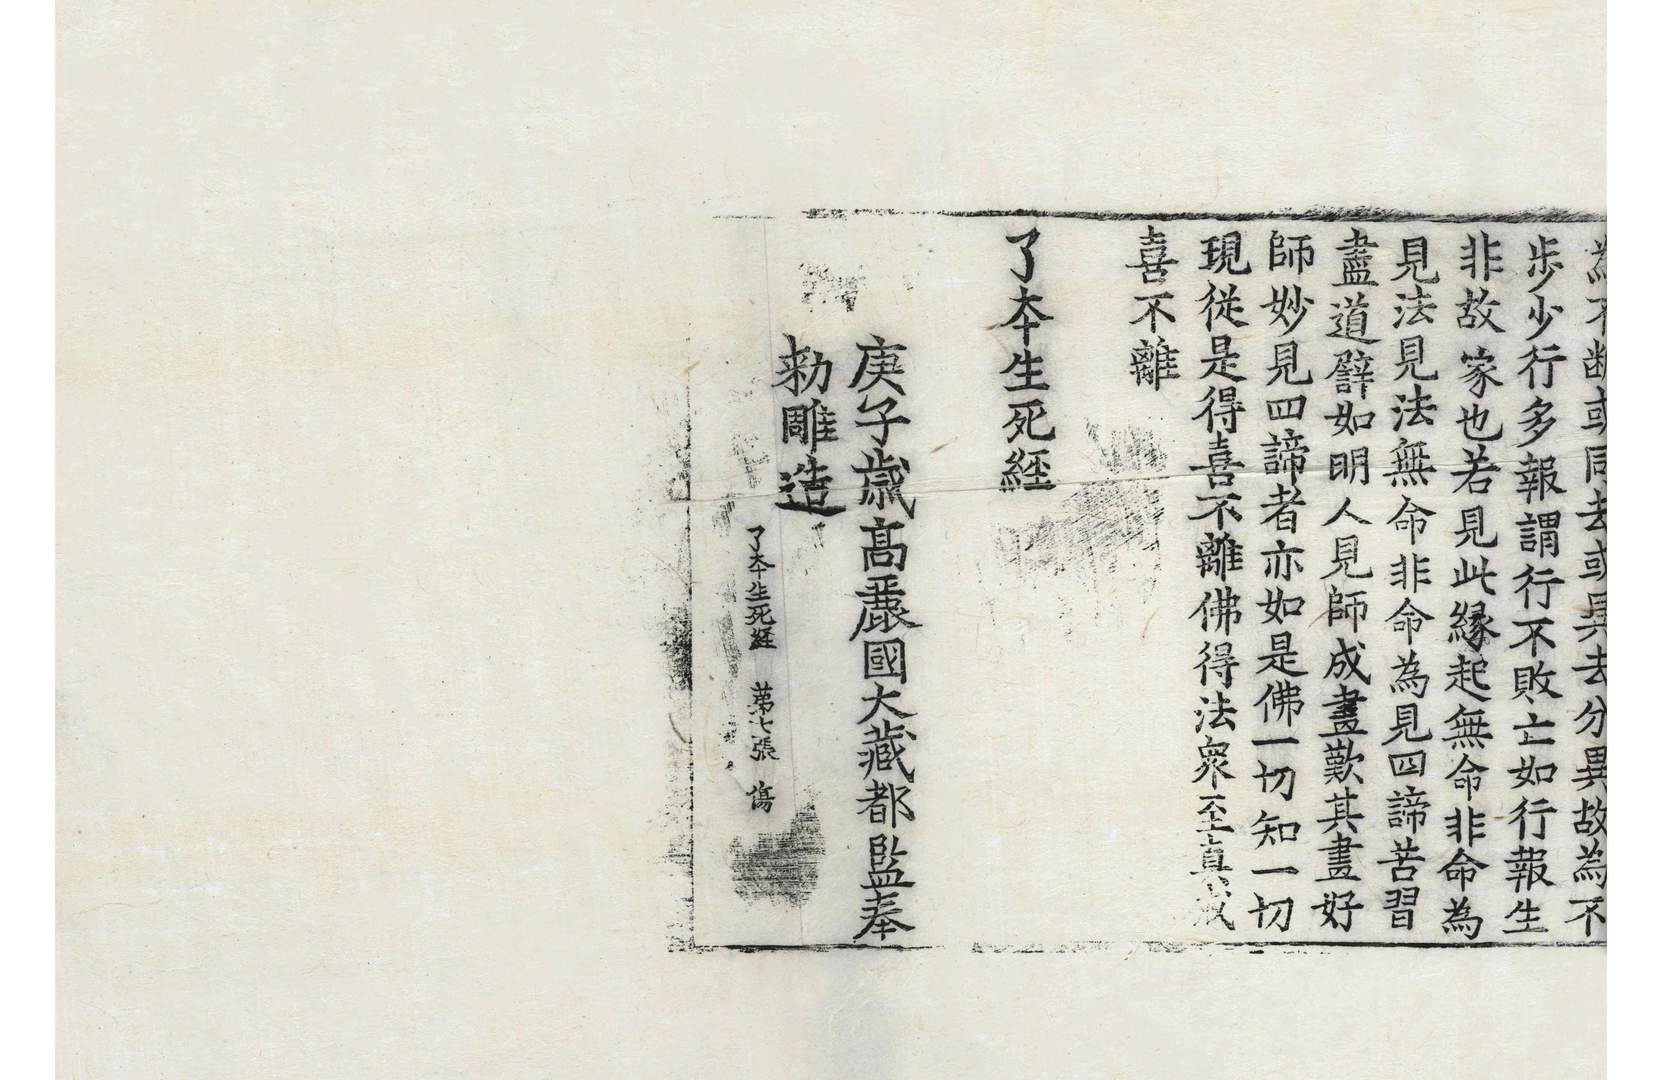 為不断或同去或異去分異故為不
步少行多報謂行不敗亡如行報生
非故家也若見此縁起無命非命為
見法見法無命非命為見四諦苦習
盡道譬如明人見師成畫歎其畫好
師妙見四諦者亦如是佛一切知一切
現從是得喜不離佛得法衆至真戒
喜不離
了夲生死經
庚子歳髙麗國大藏都監奉
勑雕造
了夲生死経 苐七張 傷